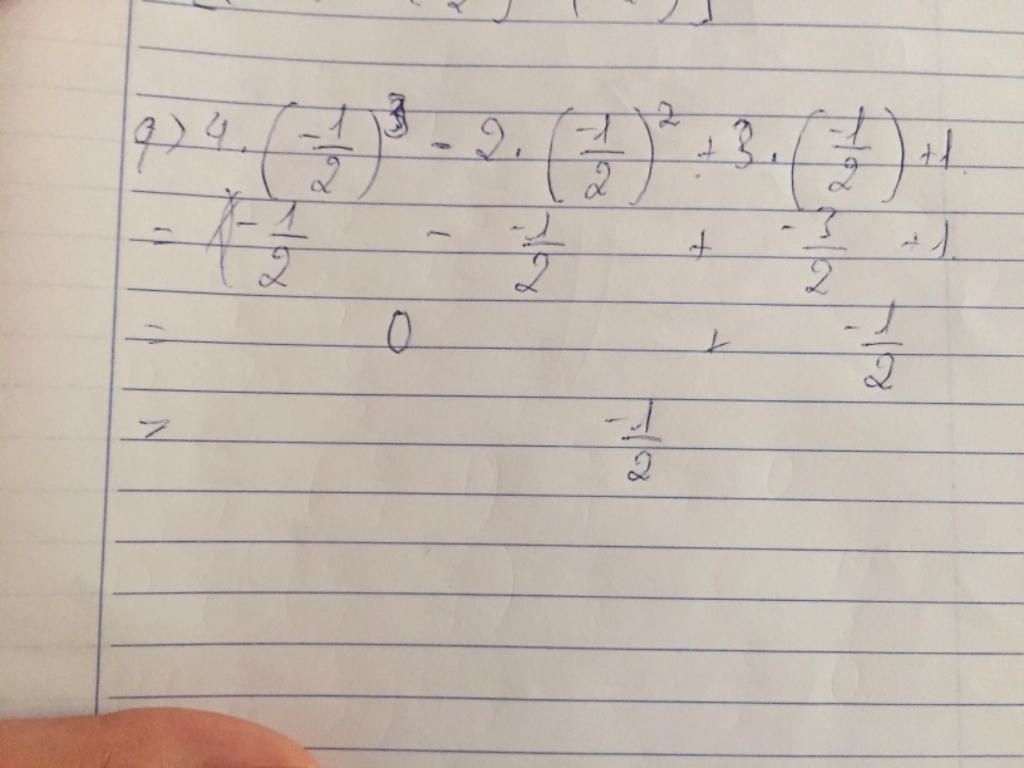 9) 4 . (-1/2)^3 - 2 . (-1/2)^2 + 3 . (-1/2) + 1
= -1/2 - -1/2 + -3/2 + 1
= 0 + -1/2
= -1/2